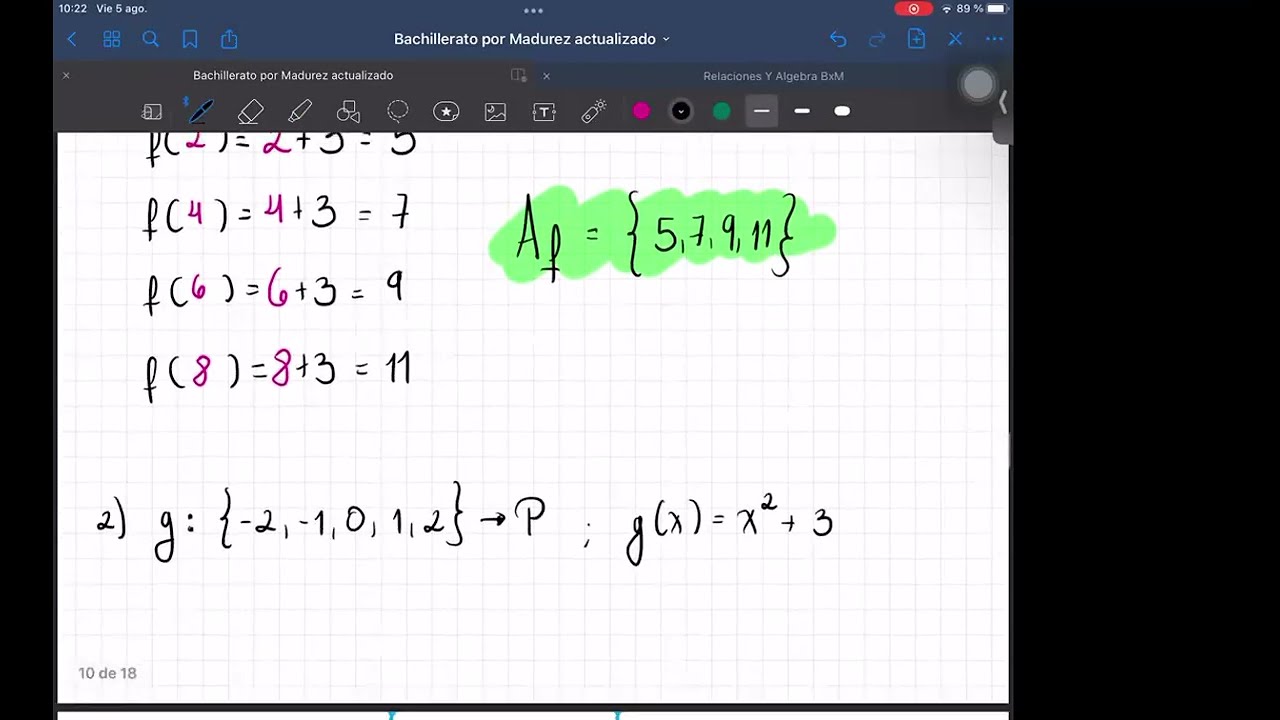 10:22 Vie 5 ago. 89 %
Bachillerato por Madurez actualizado
Bachillerato por Madurez actualizado Relaciones Y Algebra BxM
f(2) = 2+3 = 5
f(4) = 4+3 = 7
Af = {5,7,9,11}
f(6) = 6+3 = 9
f(8) = 8+3 = 11
2) g: {-2,-1,0,1,2} → P ; g(x) = x² + 3
10 de 18